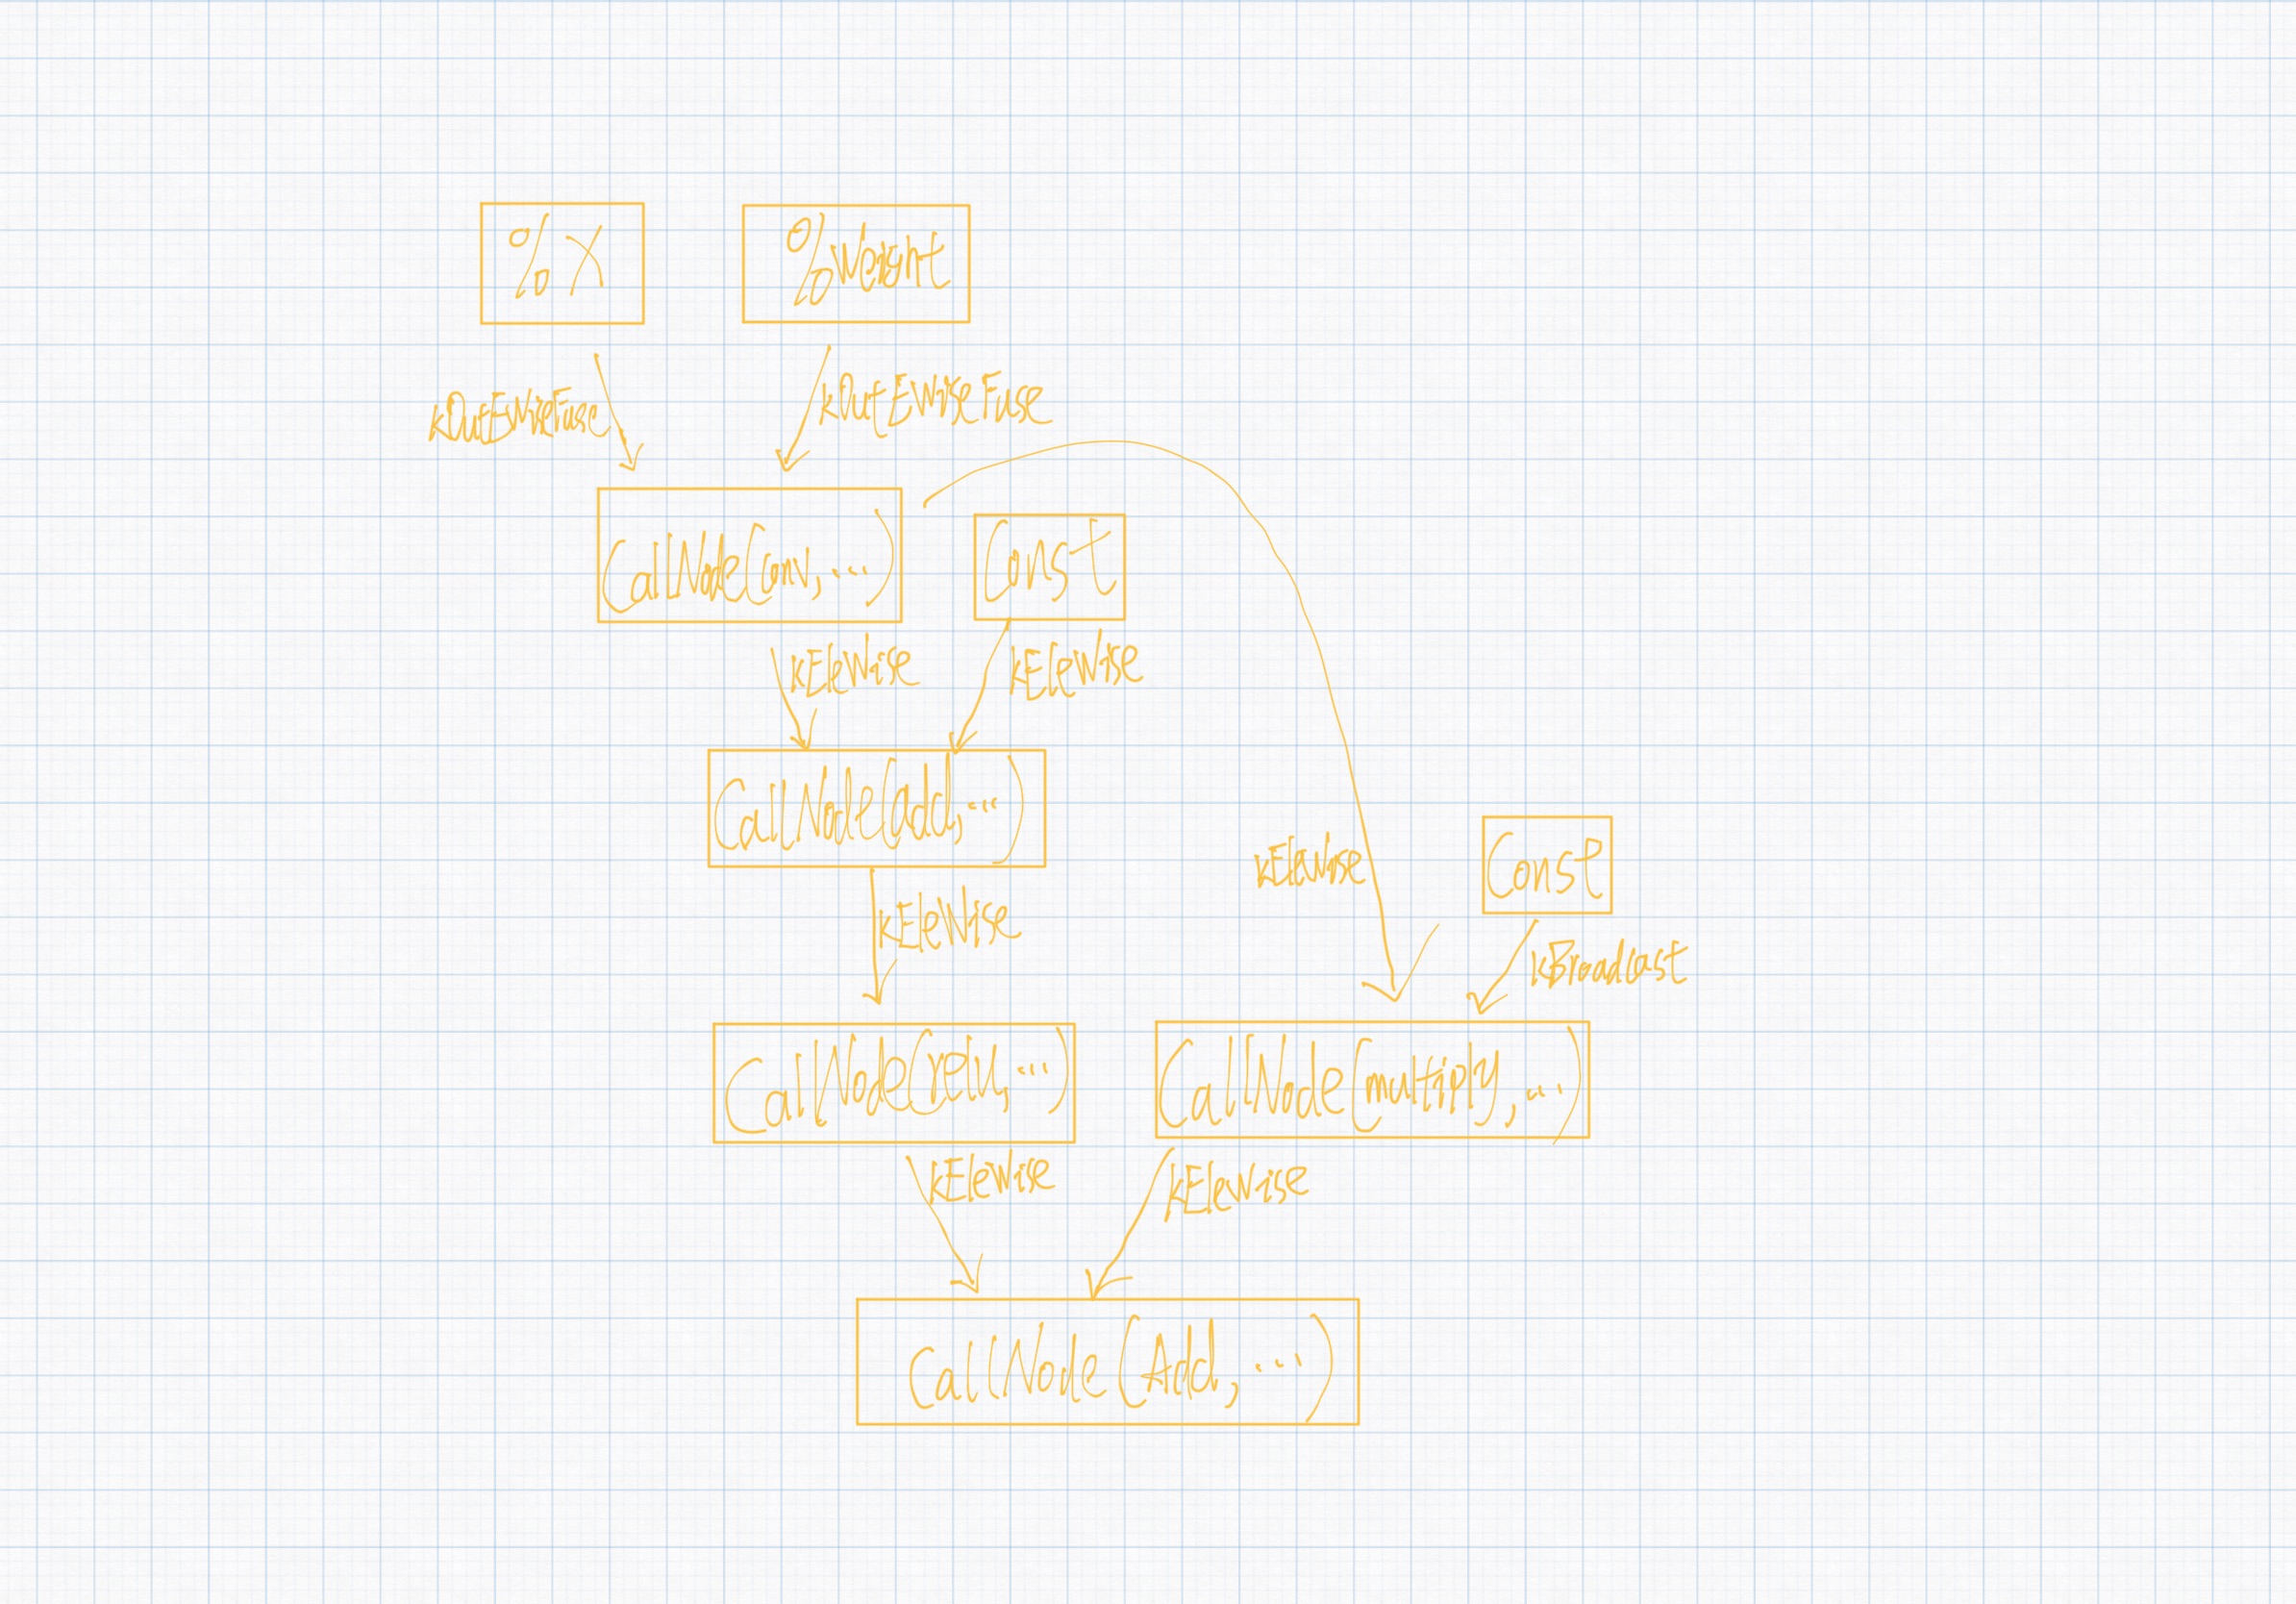 %X
%Weight
kOutEWiseFuse
kOutEWiseFuse
CallNode(Conv, ...)
Const
kEleWise
kEleWise
CallNode(add, ...)
kEleWise
Const
kEleWise
kBroadcast
CallNode(relu, ...)
CallNode(multiply, ...)
kEleWise
kEleWise
CallNode(Add, ...)